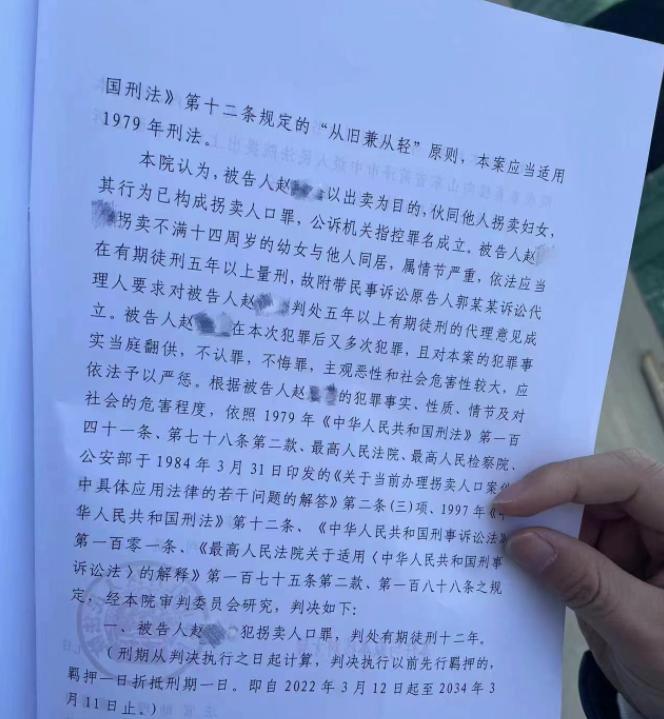 国刑法》第十二条规定的“从旧兼从轻”原则，本案应当适用
1979年刑法。
本院认为，被告人赵以出卖为目的，伙同他人拐卖妇女，
其行为已构成拐卖人口罪，公诉机关指控罪名成立。被告人赵
拐卖不满十四周岁的幼女与他人同居，属情节严重，依法应当
在有期徒刑五年以上量刑，故附带民事诉讼原告人郭某某诉讼代
理人要求对被告人赵判处五年以上有期徒刑的代理意见成
立。被告人赵在本次犯罪后又多次犯罪，且对本案的犯罪事
实当庭翻供，不认罪，不悔罪，主观恶性和社会危害性较大，应
依法予以严惩。根据被告人赵的犯罪事实、性质、情节及对
社会的危害程度，依照1979年《中华人民共和国刑法》第一百
四十一条、第七十八条第二款、最高人民法院、最高人民检察院、
公安部于1984年3月31日印发的《关于当前办理拐卖人口案
中具体应用法律的若干问题的解答》第二条(三)项、1997年《
华人民共和国刑法》第十二条、《中华人民共和国刑事诉讼法》
第一百零一条、《最高人民法院关于适用〈中华人民共和国刑事
诉讼法〉的解释》第一百七十五条第二款、第一百八十八条之规
定，经本院审判委员会研究，判决如下：
一、被告人赵犯拐卖人口罪，判处有期徒刑十二年。
（刑期从判决执行之日起计算，判决执行以前先行羁押的，
羁押一日折抵刑期一日。即自2022年3月12日起至2034年3
月11日止。）